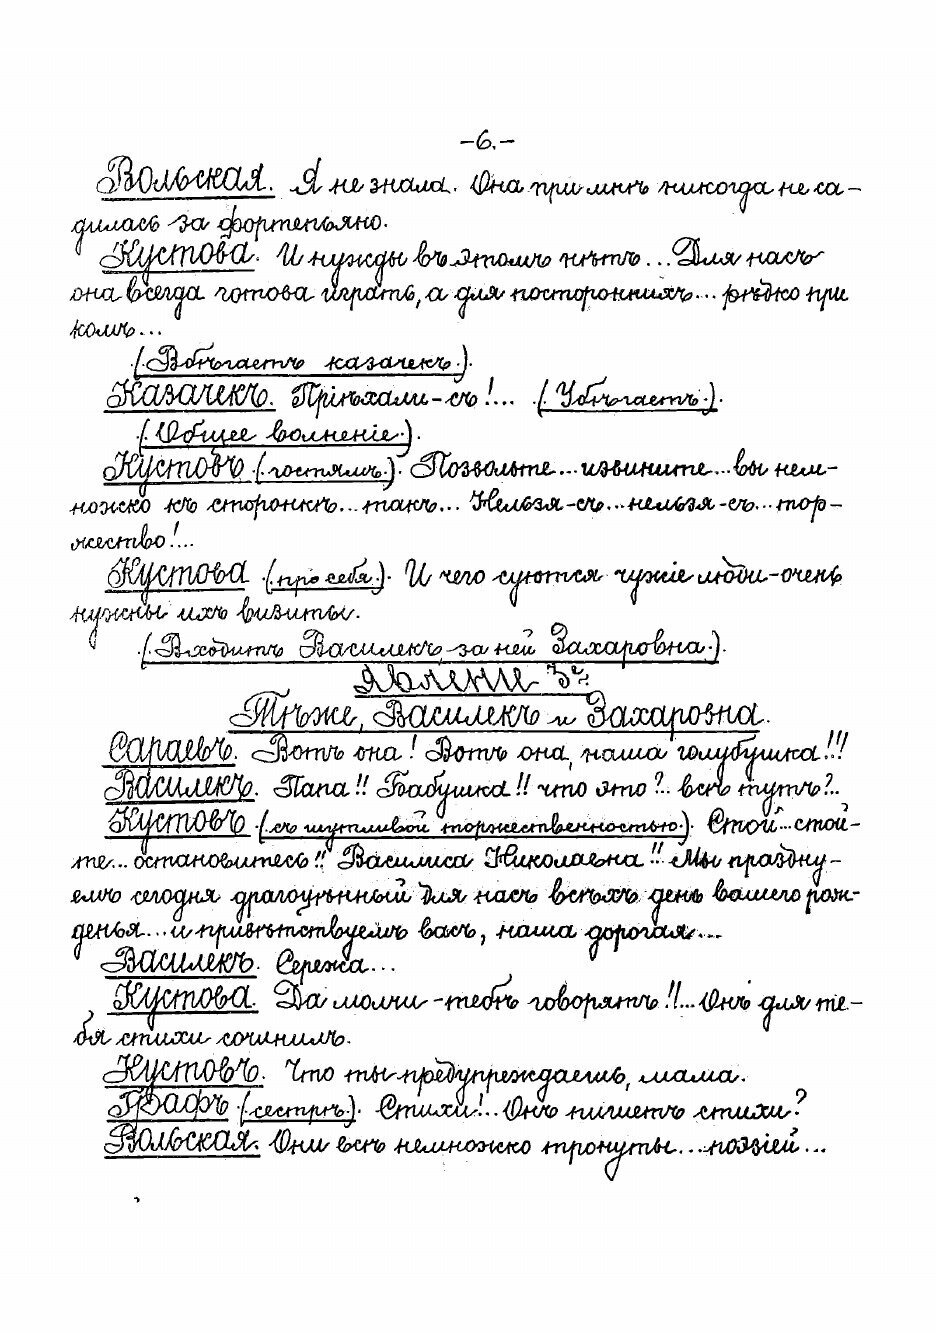 -6.-
Вольская. Я не знала. Она при мнѣ никогда не са-
дилась за фортепьяно.
Кустова. И нужды въ этомъ нѣтъ... Для насъ
она всегда готова играть, а для постороннихъ... рѣдко при
комъ...
(Вбѣгаетъ казачекъ.).
Казачекъ. Пріѣхали-съ!... (Убѣгаетъ.).
(Общее волненіе.).
Кустовъ (гостямъ.). Позвольте... извините... вы нем-
ножко къ сторонкѣ... такъ... Нельзя-съ... нельзя-съ... тор-
жество!...
Кустова (про себя.). И чего суются чужіе люди-очень
нужны ихъ визиты.
(Входитъ Василекъ, за ней Захаровна.).
Явленіе 3е.
Тѣже, Василекъ и Захаровна.
Сараевъ. Вотъ она! Вотъ она, наша голубушка!!!
Василекъ. Папа!! Бабушка!! что это?.. всѣ тутъ?..
Кустовъ (съ шутливой торжественностью.). Стой... стой-
те... остановитесь!! Василиса Николаевна!! Мы праздну-
емъ сегодня драгоцѣнный для насъ всѣхъ день вашего рож-
денья... и привѣтствуемъ васъ, наша дорогая...
Василекъ. Сережа...
Кустова. Да молчи-тебѣ говорятъ!!... Онъ для те-
бя стихи сочинилъ.
Кустовъ. Что ты предупреждаешь, мама.
Графъ (сестрѣ.). Стихи!.. Онъ пишетъ стихи?
Вольская. Они всѣ немножко тронуты... поэзіей...